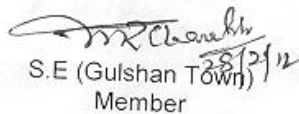 28/2/12
S.E (Gulshan Town)
Member